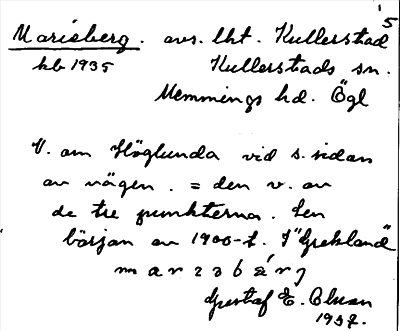 5
Marieberg. avs. lht. Kullerstad
kb 1935 Kullerstads sn.
Memmings hd. Ögl
V. om Höglunda vid s. sidan
av vägen. = den v. av
de tre punkterna. Sen
början av 1900-t. I "Grekland"
Gustaf E. Olsson
1937.